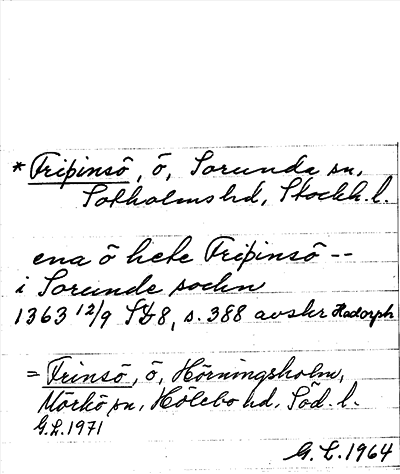 * Fripinsö, ö, Sorunda sn,
Sotholms hd, Stockh. l.
ena ö hete Fripinsö --
i Sorunde sochn
1363 12/9 SD8, s. 388 avskr Hadorph
= Frinsö, ö, Hörningsholm,
Mörkö sn, Hölebo hd, Söd. l.
G.L. 1971
G. L. 1964